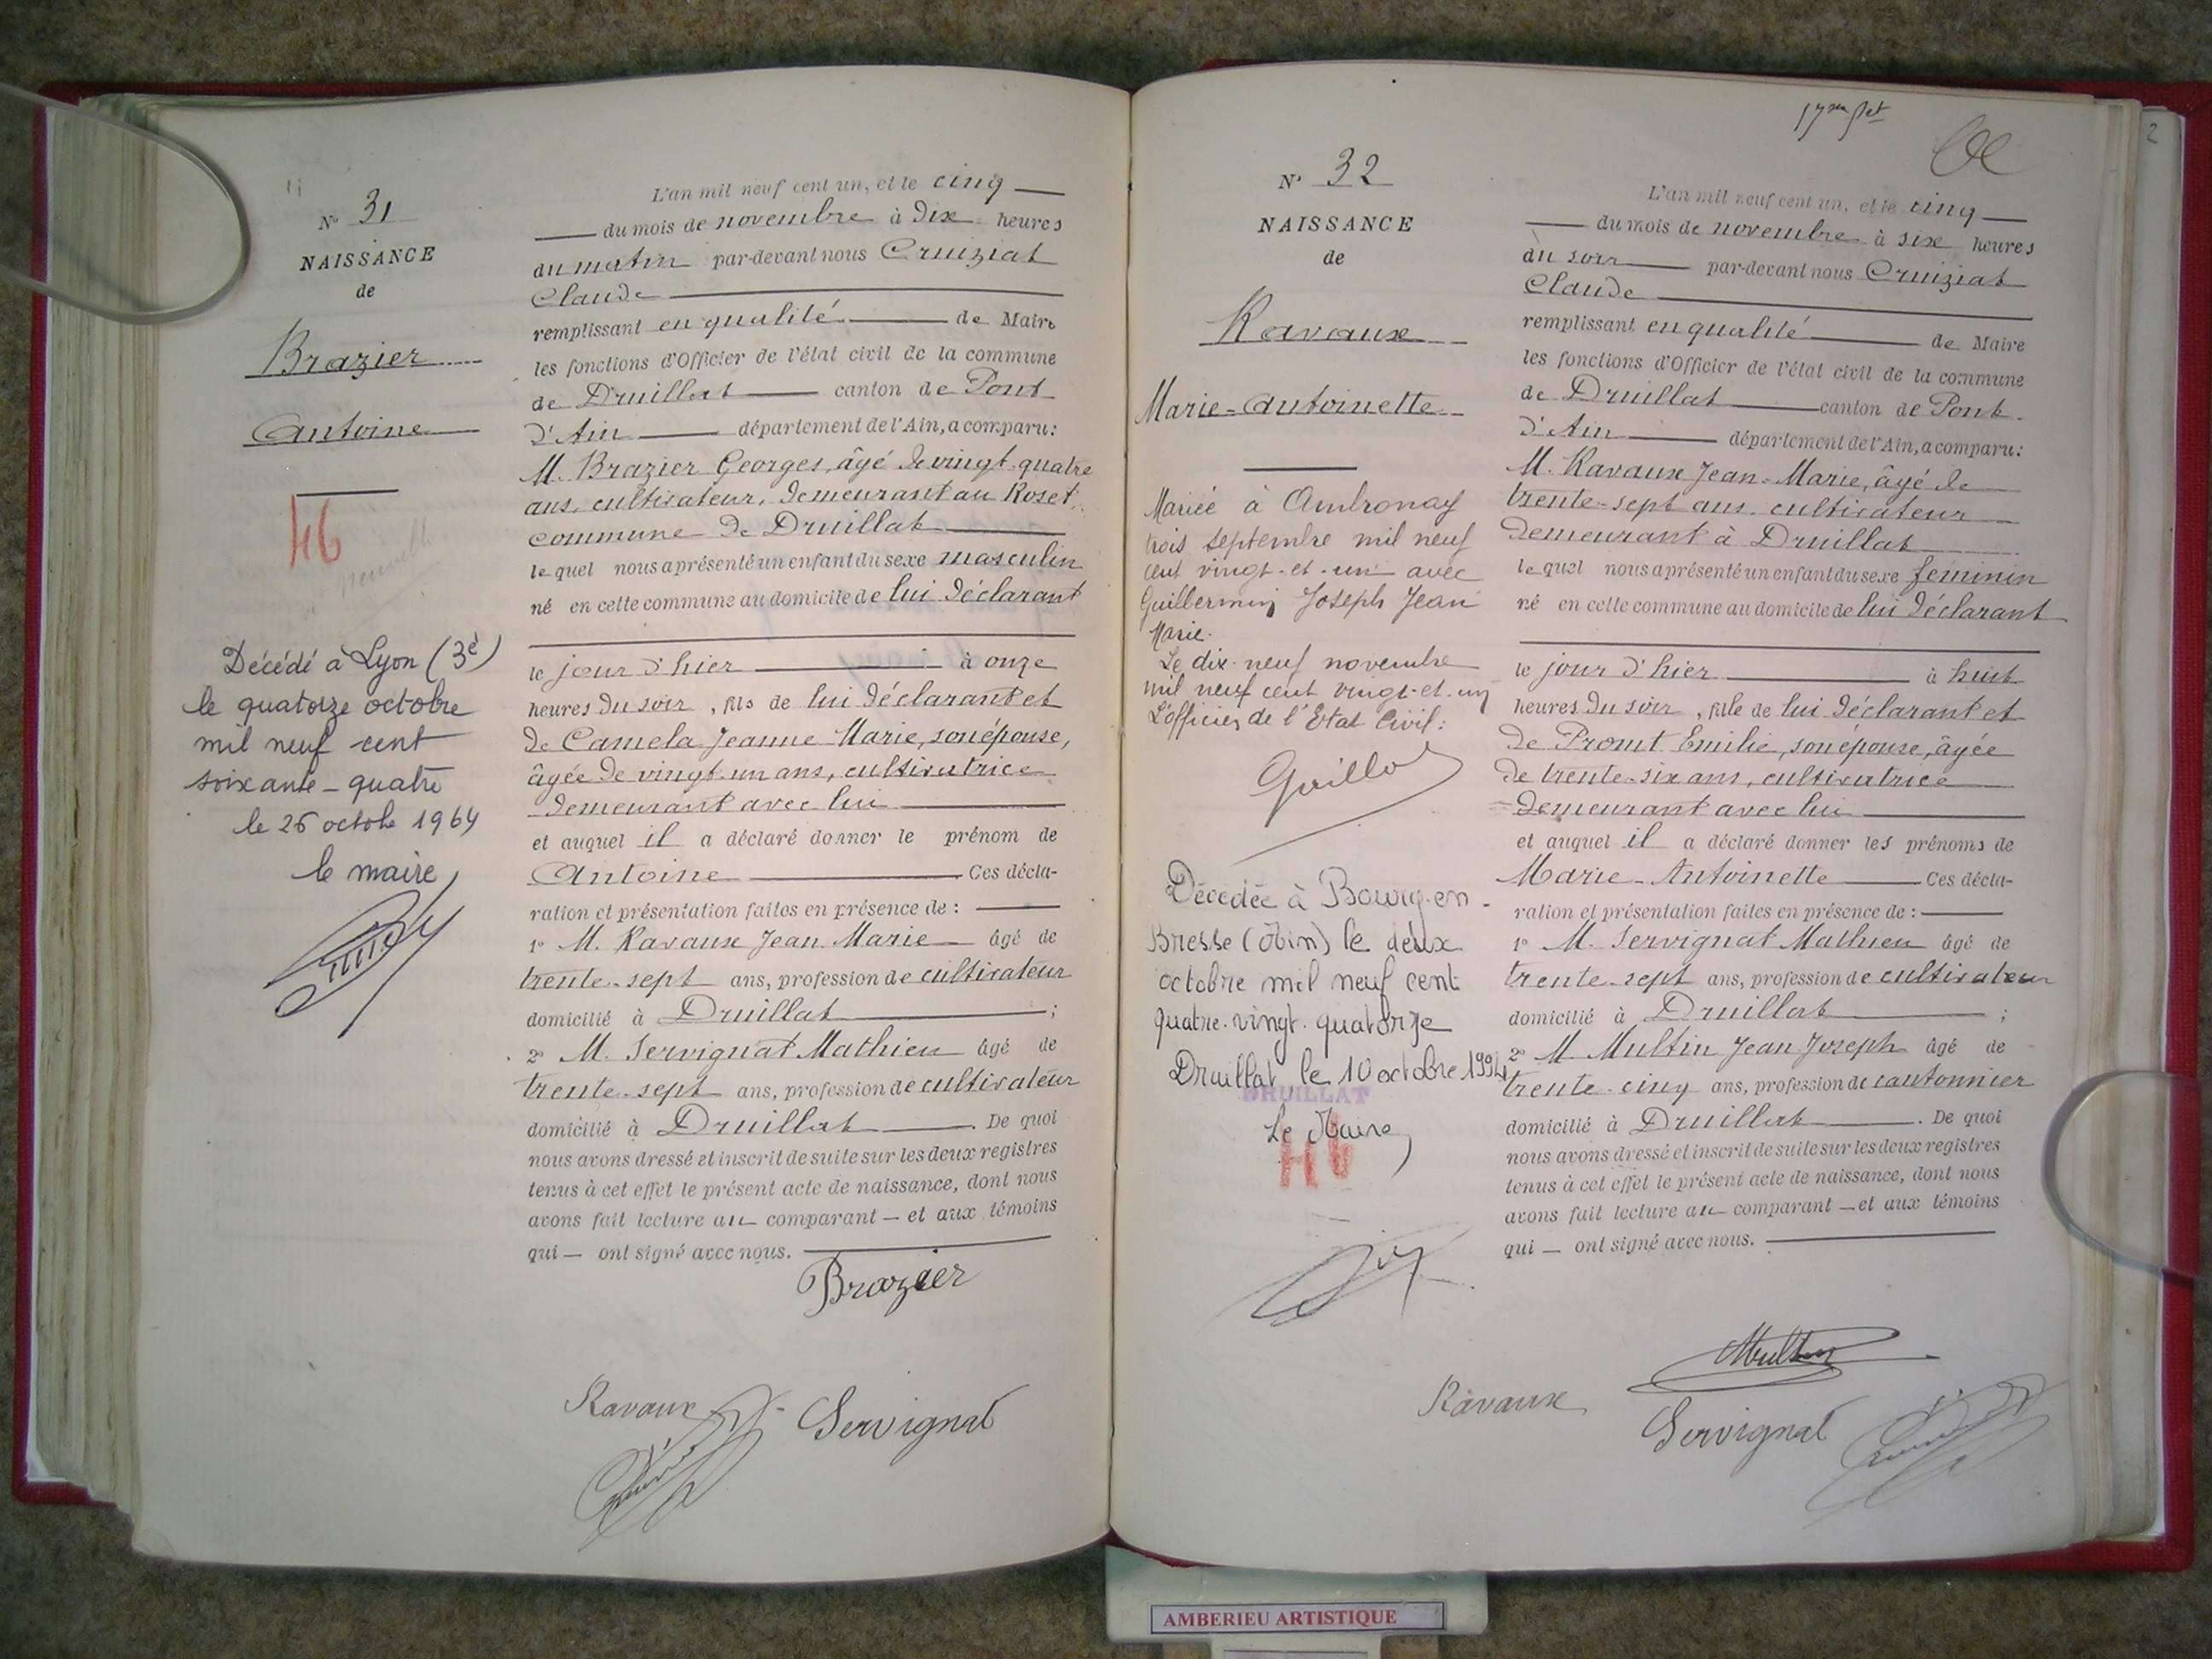 N° 31
NAISSANCE
de
Brazier
Antoine
46
Décédé à Lyon (3è)
le quatorze octobre
mil neuf cent
soixante-quatre
le 26 octobre 1964
le maire
L'an mil neuf cent un, et le cinq
du mois de novembre à dix heures
du matin par-devant nous Cruiziat
Claude
remplissant en qualité de Maire
les fonctions d'Officier de l'état civil de la commune
de Druillat canton de Pont
d'Ain département de l'Ain, a comparu:
M. Brazier Georges, âgé de vingt-quatre
ans, cultivateur, demeurant au Roset,
commune de Druillat
lequel nous a présenté un enfant du sexe masculin
né en cette commune au domicile de lui déclarant
le jour d'hier à onze
heures du soir, fils de lui déclarant et
de Camela Jeanne Marie, son épouse,
âgée de vingt-un ans, cultivatrice
demeurant avec lui
et auquel il a déclaré donner le prénom de
Antoine Ces décla-
ration et présentation faites en présence de :
1° M. Ravaux Jean Marie âgé de
trente-sept ans, profession de cultivateur
domicilié à Druillat ;
2° M. Servignat Mathieu âgé de
trente-sept ans, profession de cultivateur
domicilié à Druillat. De quoi
nous avons dressé et inscrit de suite sur les deux registres
tenus à cet effet le présent acte de naissance, dont nous
avons fait lecture au comparant — et aux témoins
qui — ont signé avec nous.
Brazier
Ravaux
Servignat
2
N° 32
NAISSANCE
de
Ravaux
Marie-Antoinette
Mariée à Ambronay
trois septembre mil neuf
cent vingt-et-un avec
Guillermin Joseph Jean
Marie.
Le dix-neuf novembre
mil neuf cent vingt-et-un
L'officier de l'Etat Civil:
Guillot
Décédée à Bourg-en-
Bresse (Ain) le deux
octobre mil neuf cent
quatre-vingt-quatorze
Druillat le 10 octobre 1994
DRUILLAT
Le Maire,
L'an mil neuf cent un, et le cinq
du mois de novembre à six heures
du soir par-devant nous Cruiziat
Claude
remplissant en qualité de Maire
les fonctions d'Officier de l'état civil de la commune
de Druillat canton de Pont
d'Ain département de l'Ain, a comparu:
M. Ravaux Jean-Marie, âgé de
trente-sept ans, cultivateur
demeurant à Druillat
lequel nous a présenté un enfant du sexe féminin
né en cette commune au domicile de lui déclarant
le jour d'hier à huit
heures du soir, fille de lui déclarant et
de Promt Emilie, son épouse, âgée
de trente-six ans, cultivatrice
demeurant avec lui
et auquel il a déclaré donner les prénoms de
Marie-Antoinette Ces décla-
ration et présentation faites en présence de :
1° M. Servignat Mathieu âgé de
trente-sept ans, profession de cultivateur
domicilié à Druillat ;
2° M. Multin Jean Joseph âgé de
trente-cinq ans, profession de cantonnier
domicilié à Druillat. De quoi
nous avons dressé et inscrit de suite sur les deux registres
tenus à cet effet le présent acte de naissance, dont nous
avons fait lecture au comparant — et aux témoins
qui — ont signé avec nous.
Multin
Ravaux
Servignat
AMBERIEU ARTISTIQUE